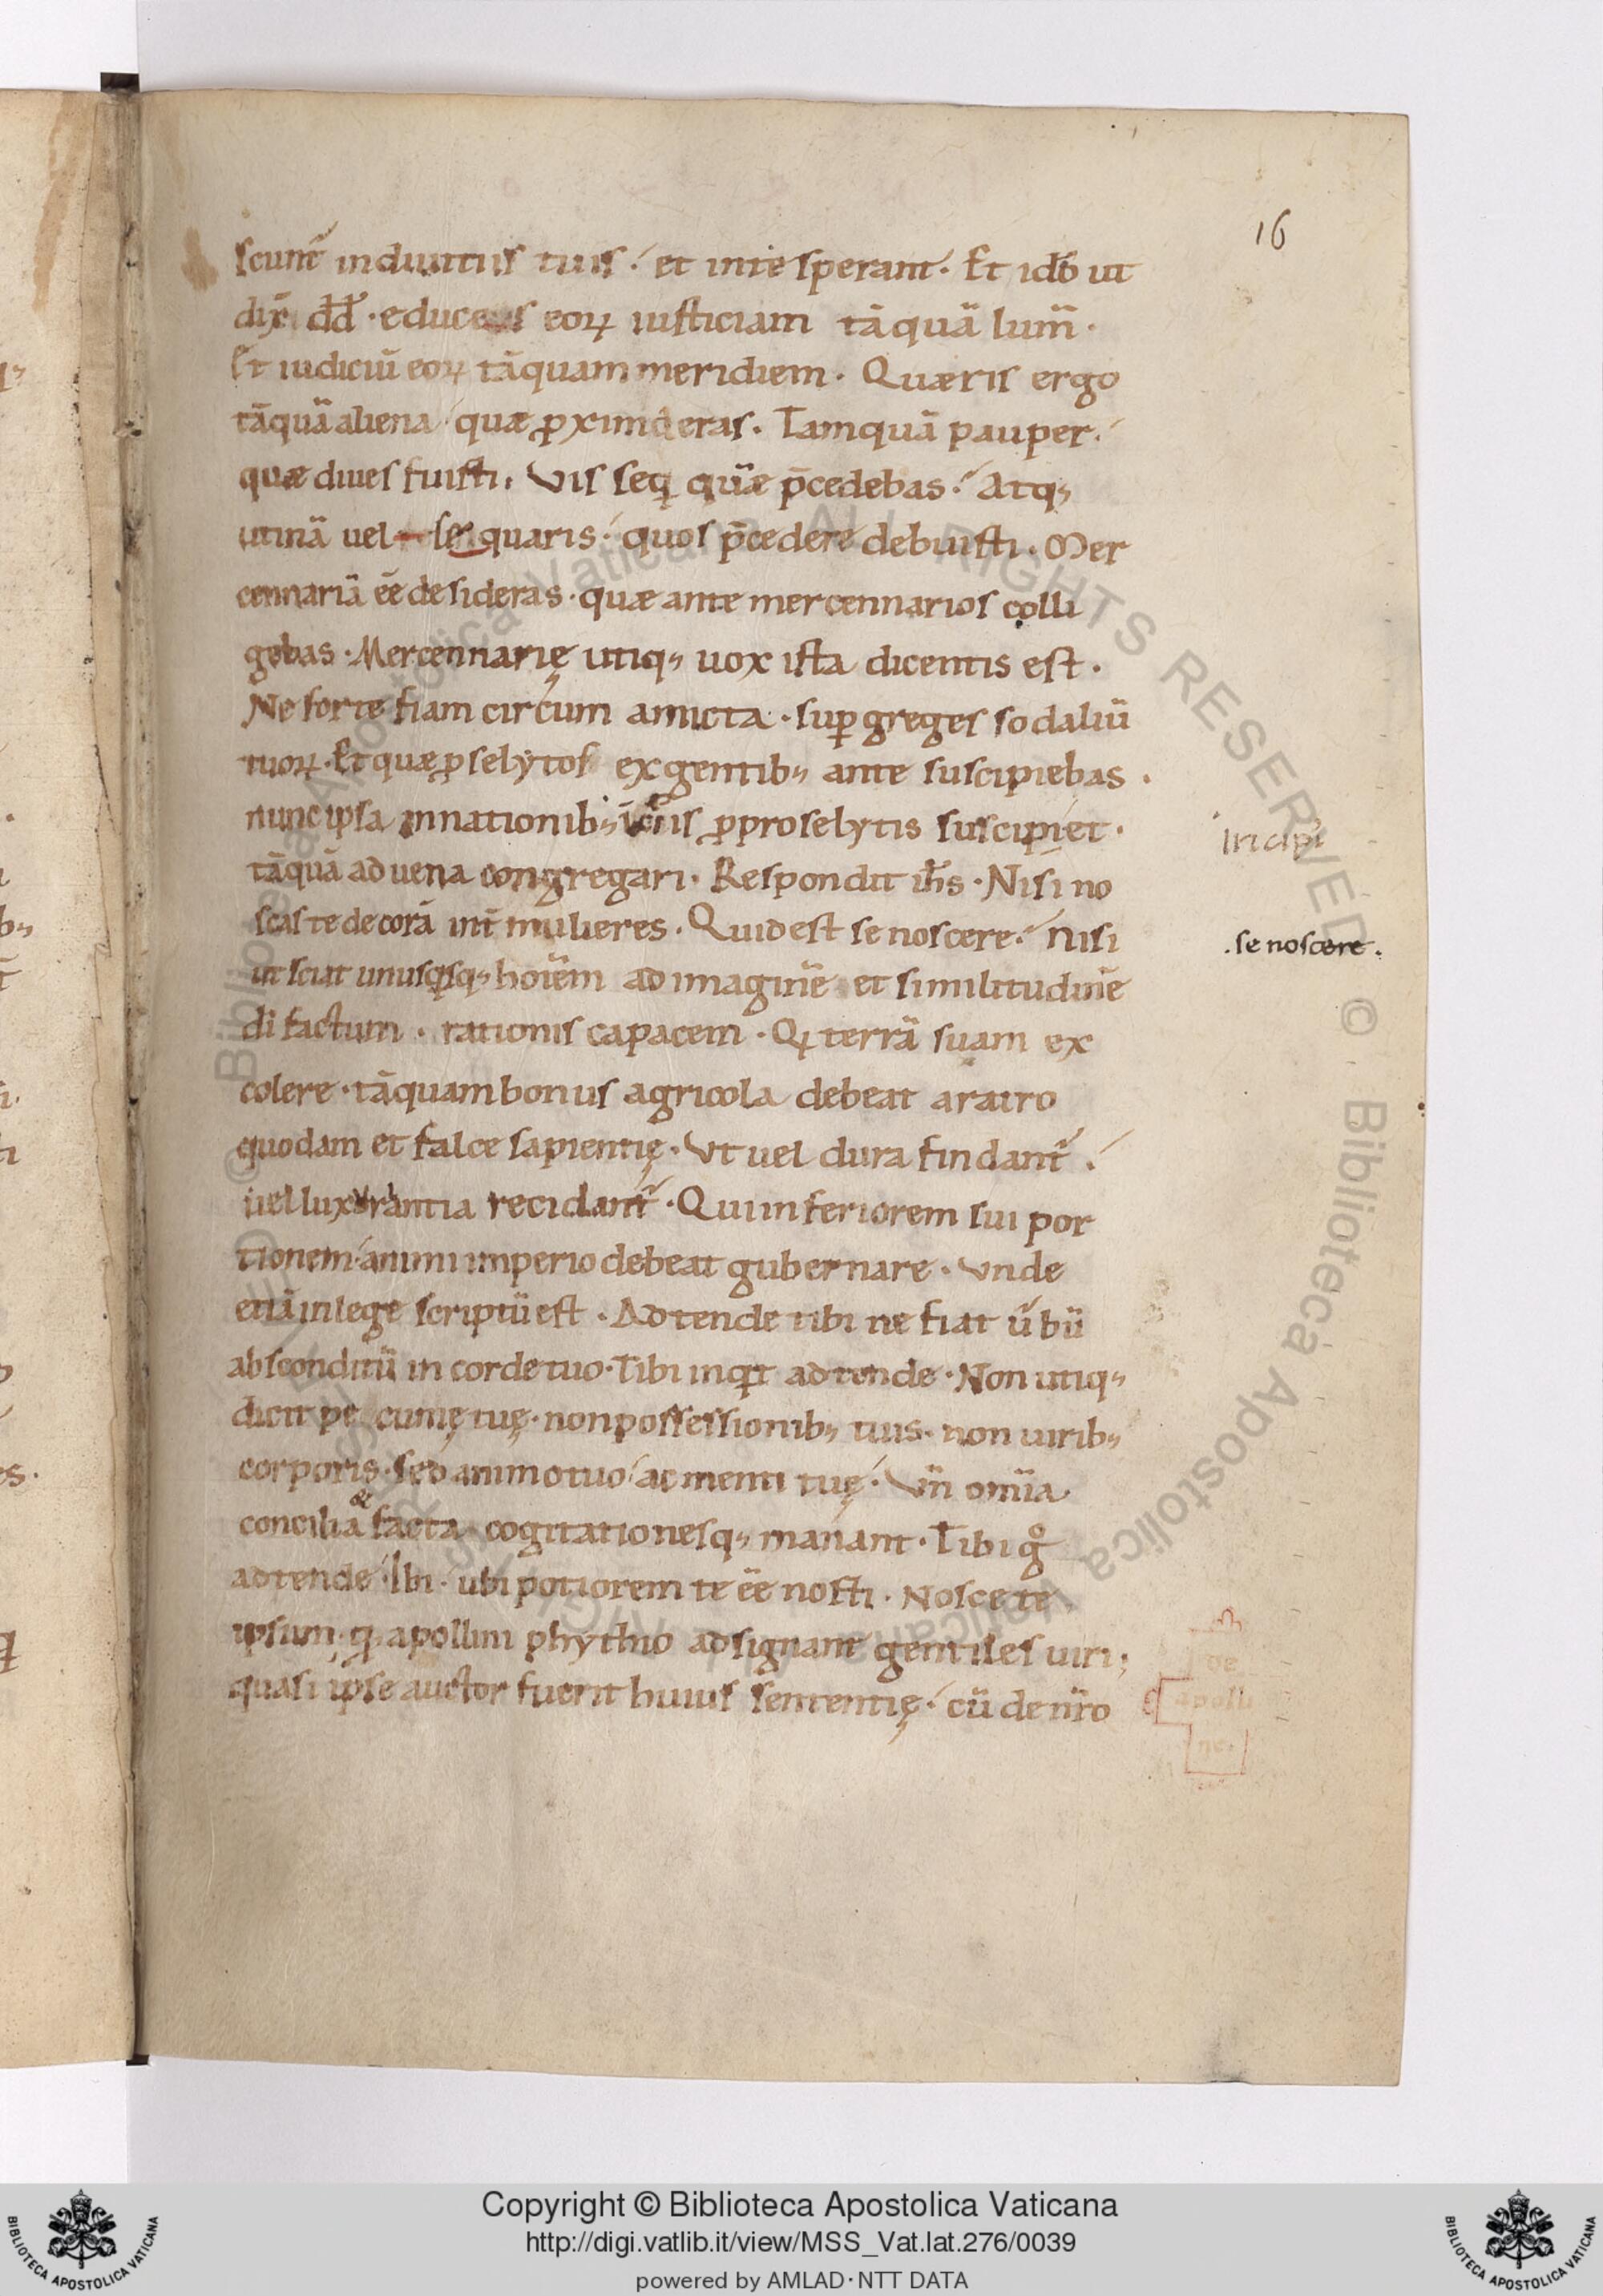 16
scunt̄ indiuitiis tuis. et inte sperant. Et idō ut
dix̄ dd̄. educens eoꝝ iusticiam tāquā lum̄.
Et iudiciū eoꝝ tāquam meridiem. Quæris ergo
tāquā aliena quæ ꝓxima eras. Tamquā pauper.
quæ diues fuisti. Vis seq̨ quæ p̄cedebas. Atq;
utinā uel sequaris. quos p̄cedere debuisti. Mer
cennariā eē desideras. quæ ante mercennarios colli
gebas. Mercennarię utiq; uox ista dicentis est.
Ne forte fiam circum amicta. suꝑ greges sodaliū
tuoꝝ. Et quæ ꝓselytos ex gentib; ante suscipiebas.
nunc ipsa innationib; is ꝓproselytis suscipiet.
tāquā aduena congregari. Respondit ih̄s. Nisi no
scas te decorā int̄ mulieres. Quid est se noscere. Nisi
se noscere.
ut sciat unusq̨sq; hoīem ad imaginē et similitudinē
dī factum. rationis capacem. Qꝫ terrā suam ex
colere. tāquam bonus agricola debeat aratro
quodam et falce sapientię. Vt uel dura findant̄.
uel luxurantia recidant̄. Qui inferiorem sui por
tionem animi imperio debeat gubernare. Vnde
etiā inlege scriptū est. Adtende tibi ne fiat ūbū
absconditū in corde tuo. Tibi inq̨t adtende. Non utiq;
dicit pecunię tuę. non possessionib; tuis. non uirib;
corporis. Sed animo tuo ac menti tuę. Vn̄ omīa
concilia & facta cogitationesq; manant. Tibi gͦ
adtende. Ibi. ubi potiorem te eē nosti. Nosce te
ipsum. qꝫ apollini phythio adsignant gentiles uiri;
de
apolli
ne.
quasi ipse auctor fuerit huius sententię. cū de nr̄o
Copyright © Biblioteca Apostolica Vaticana
http://digi.vatlib.it/view/MSS_Vat.lat.276/0039
powered by AMLAD·NTT DATA
BIBLIOTECA APOSTOLICA VATICANA
BIBLIOTECA APOSTOLICA VATICANA